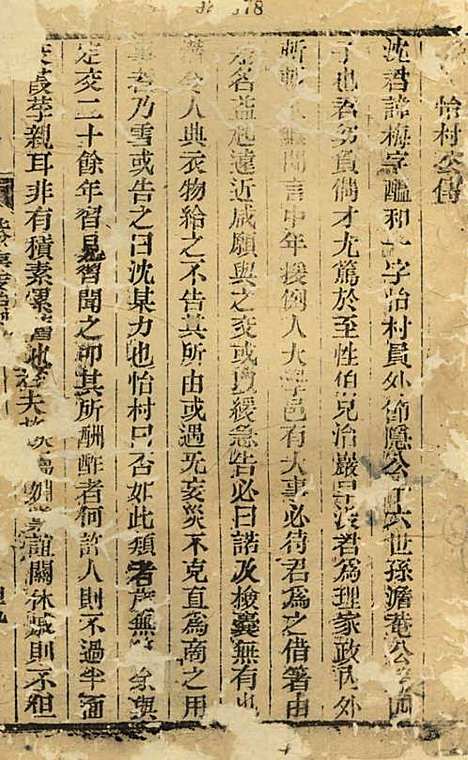 怡村公傳
沈君諱梅字醞和一字怡村員外節隱公六世孫澹菴公四
子也君夙負倜才尤篤於至性伯兄治嚴早沒君為理家政內外
斬斬無閒言中年援例入大學邑有大事必待君為之借箸由
是名益起遠近咸願與之交或以緩急告必曰諾及檢囊無有也
令人典衣物給之不告其所由或遇无妄災不克直為南之用
事者乃雪或告之曰沈某力也怡村曰否如此類者蓋無余與
定交二十餘年習見習聞之即其所酬酢者何許人則不過半面
交葭莩親耳非有積素累也夫誼關休戚則不但